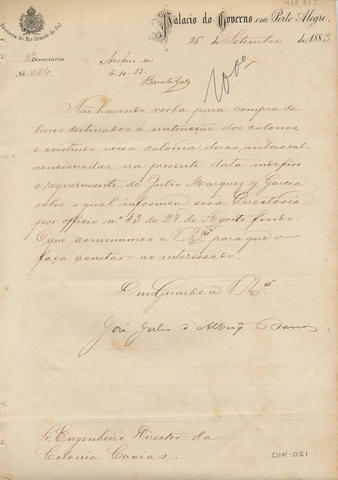 Provincia do Rio Grande do Sul
Palacio do Governo em Porto Alegre,
26 de Setembro de 1883
Directoria
Nº
Archive-se
6-10-83
Não havendo verba para compra de
livros destinados á instrucção dos colonos,
e existindo nessa colonia duas aulas sub-
vencionadas, na presente data indefiro
o requerimento de Julio Marquez y Garcia
sobre o qual informou essa Directoria
por officio nº 43 de 28 de Agosto findo:
O que communico a Vmcê para que o
faça constar ao interessado.
Deus Guarde a Vmcê
José Julio d'Albuqe Barros
Sr. Engenheiro Director da
Colonia Caxias.
DIR-051